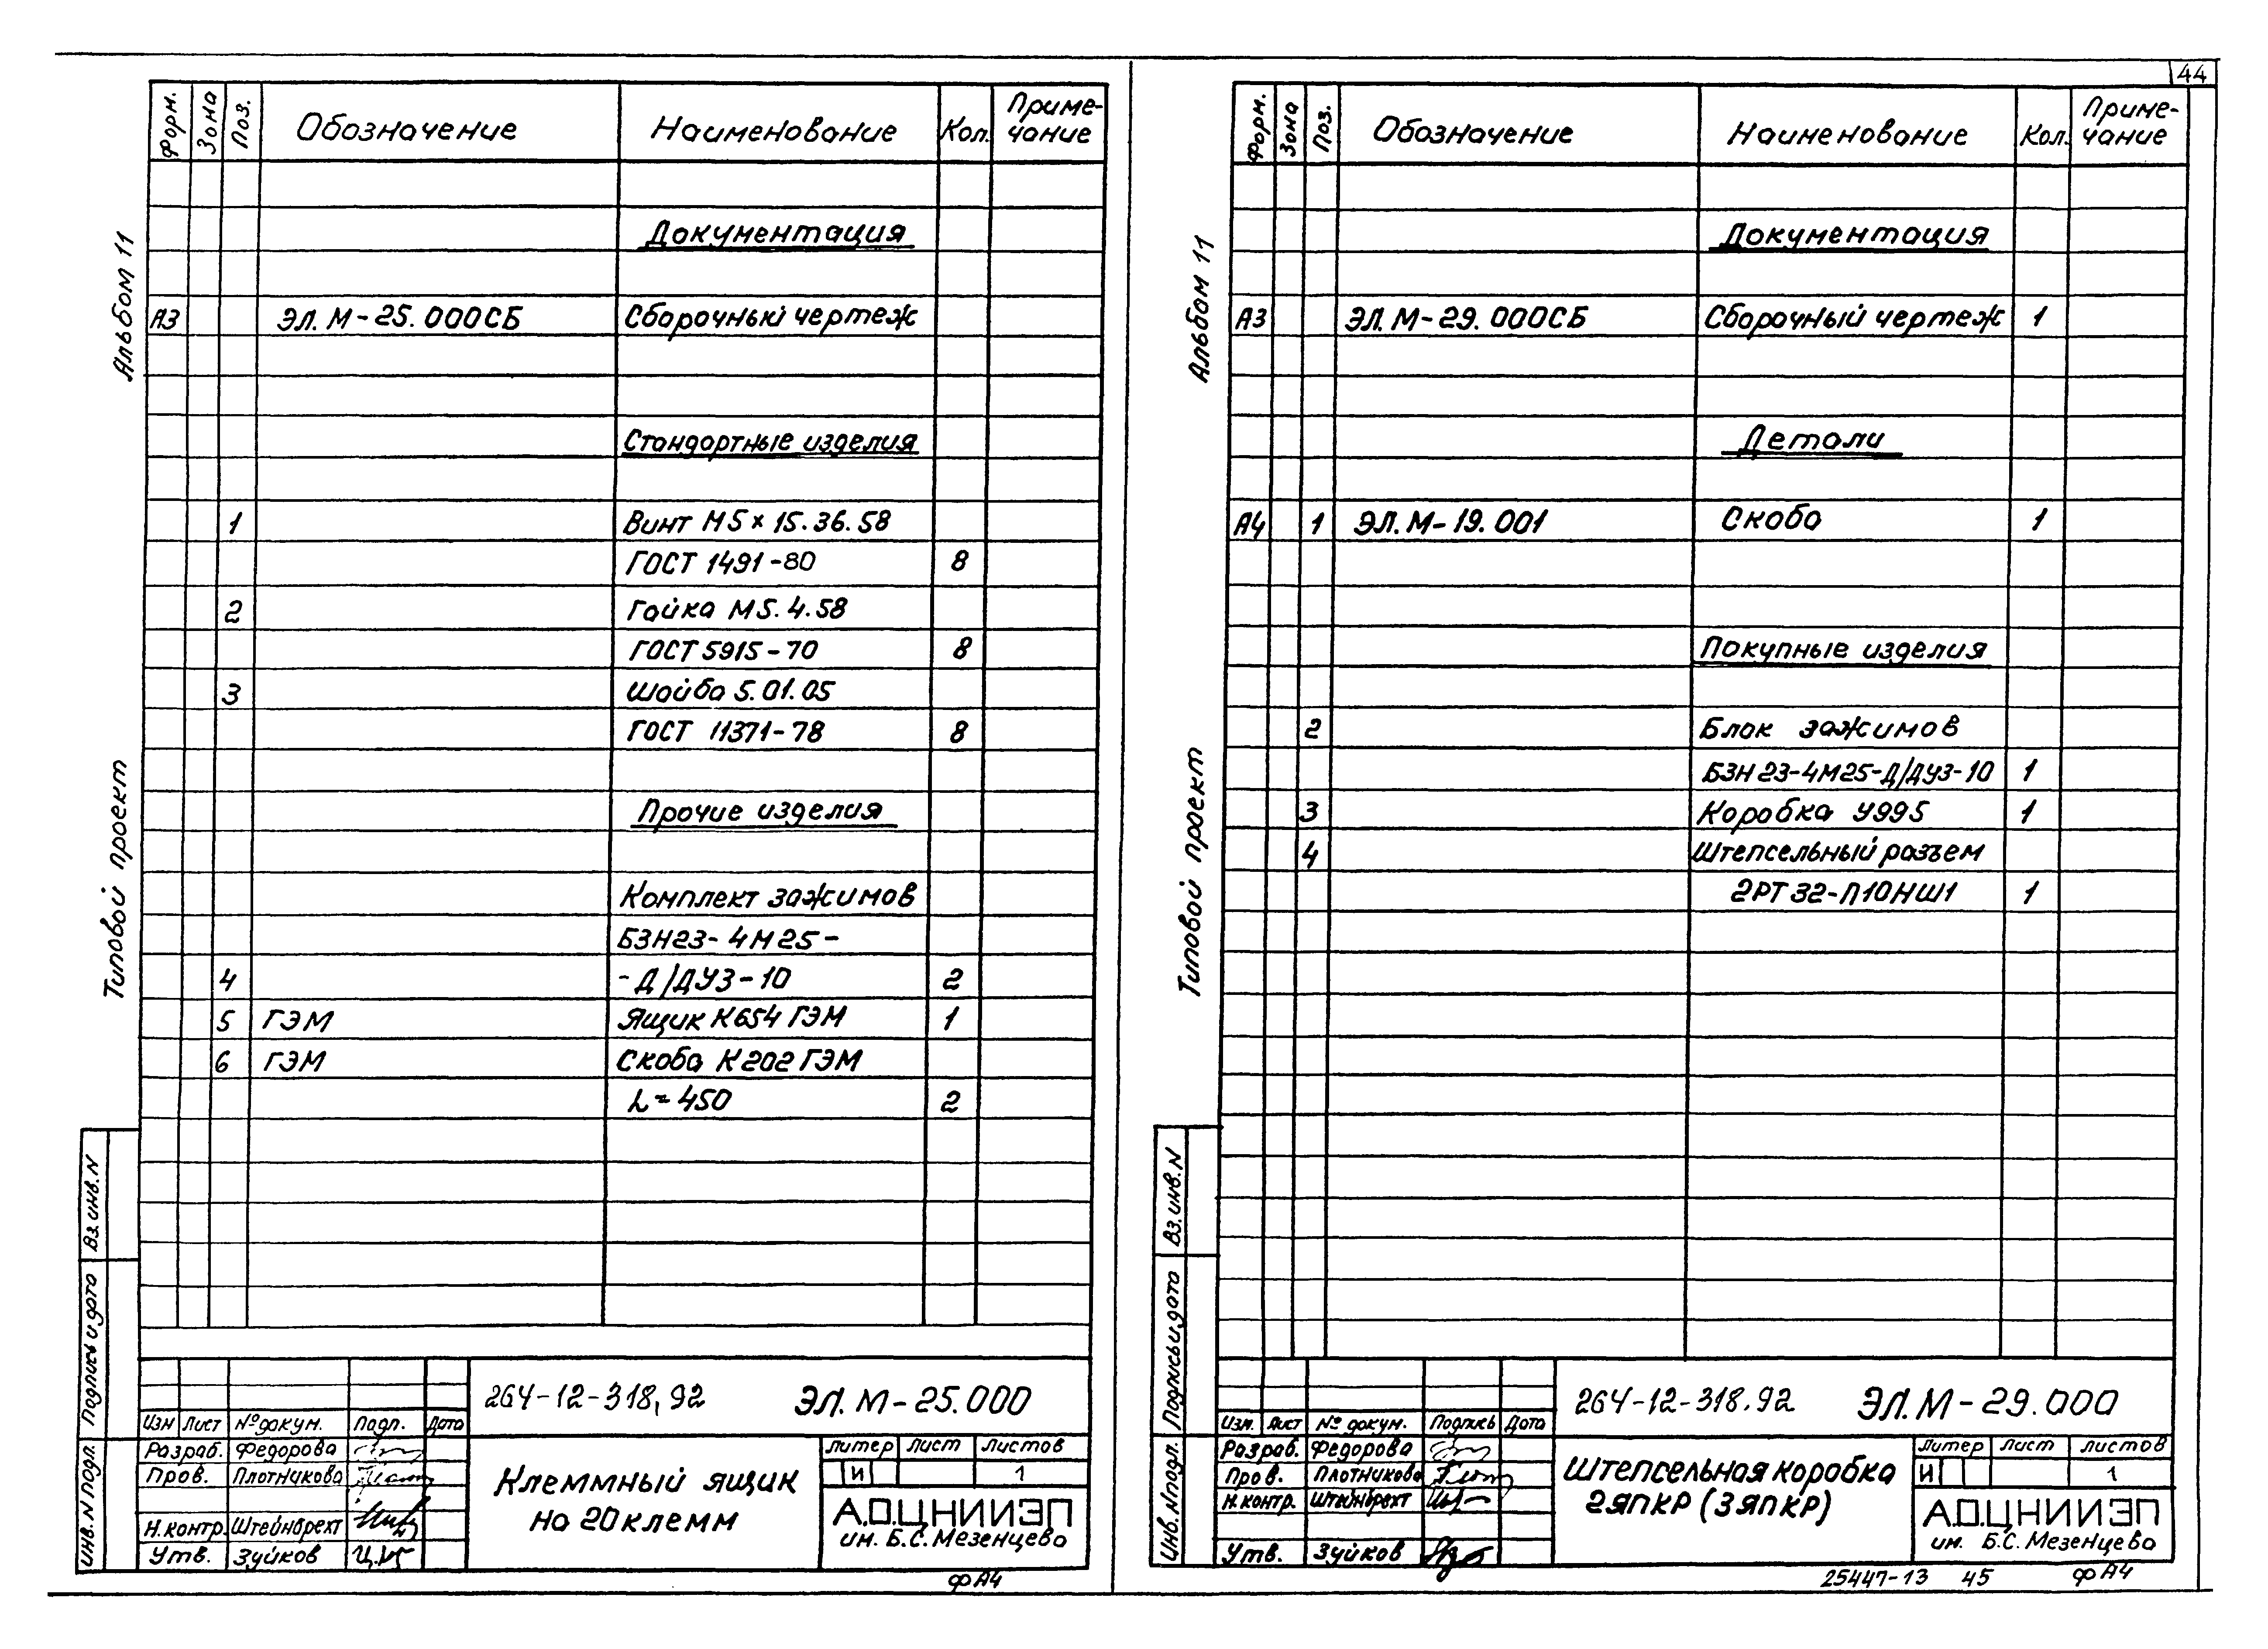 44
Альбом 11
Типовой проект
Форм. Зона Поз. Обозначение Наименование Кол. Приме-
чание
Документация
А3 ЭЛ.М-25.000СБ Сборочный чертеж
Стандортные изделия
1 Винт М5×15.36.58
ГОСТ 1491-80 8
2 Гайка М5.4.58
ГОСТ 5915-70 8
3 Шайба 5.01.05
ГОСТ 11371-78 8
Прочие изделия
Комплект зажимов
БЗН23-4М25-
4 -Д/ДУЗ-10 2
5 ГЭМ Ящик К654 ГЭМ 1
6 ГЭМ Скоба К202 ГЭМ
L=450 2
Вз. инв. N
Подпись и дата
Инв. N подл.
264-12-318,92 ЭЛ.М-25.000
Изм Лист № докум. Подп. Дата
Разраб. Федорова
Пров. Плотникова
Н.контр. Штейнбрехт
Утв. Зуйков
Клеммный ящик
на 20 клемм
Литер Лист Листов
И 1
А.О.ЦНИИЭП
им. Б.С. Мезенцева
ф А4
Альбом 11
Типовой проект
Форм. Зона Поз. Обозначение Наименование Кол. Приме-
чание
Документация
А3 ЭЛ.М-29.000СБ Сборочный чертеж 1
Детали
А4 1 ЭЛ.М-19.001 Скоба 1
Покупные изделия
2 Блок зажимов
БЗН23-4М25-Д/ДУЗ-10 1
3 Коробка У995 1
4 Штепсельный разъем
2РТ32-П10НШ1 1
Вз. инв. N
Подпись и дата
Инв. N подл.
264-12-318.92 ЭЛ.М-29.000
Изм. Лист № докум. Подпись Дата
Разраб. Федорова
Пров. Плотникова
Н.контр. Штейнбрехт
Утв. Зуйков
Штепсельная коробка
2ЯПКР (3ЯПКР)
Литер Лист Листов
И 1
А.О.ЦНИИЭП
им. Б.С. Мезенцева
25447-13 45 ф А4